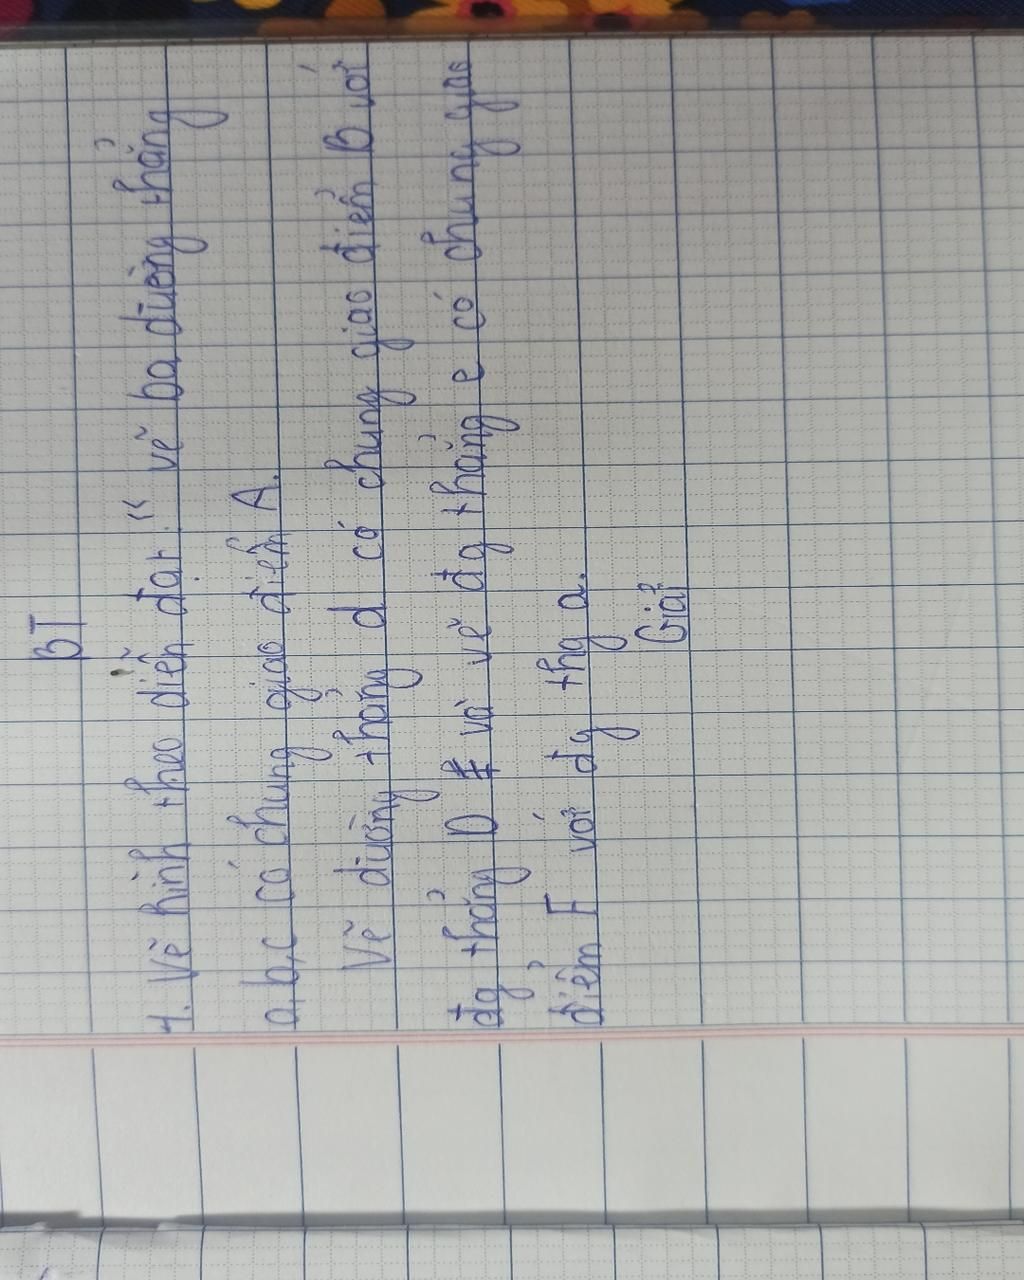 BT
1. Vẽ hình theo diễn đạt " vẽ ba đường thẳng
a, b, c có chung giao điểm A.
Vẽ đường thẳng d có chung giao điểm B với
đg thẳng D và vẽ đg thẳng e có chung giao
điểm F với đg thg a.
Giải